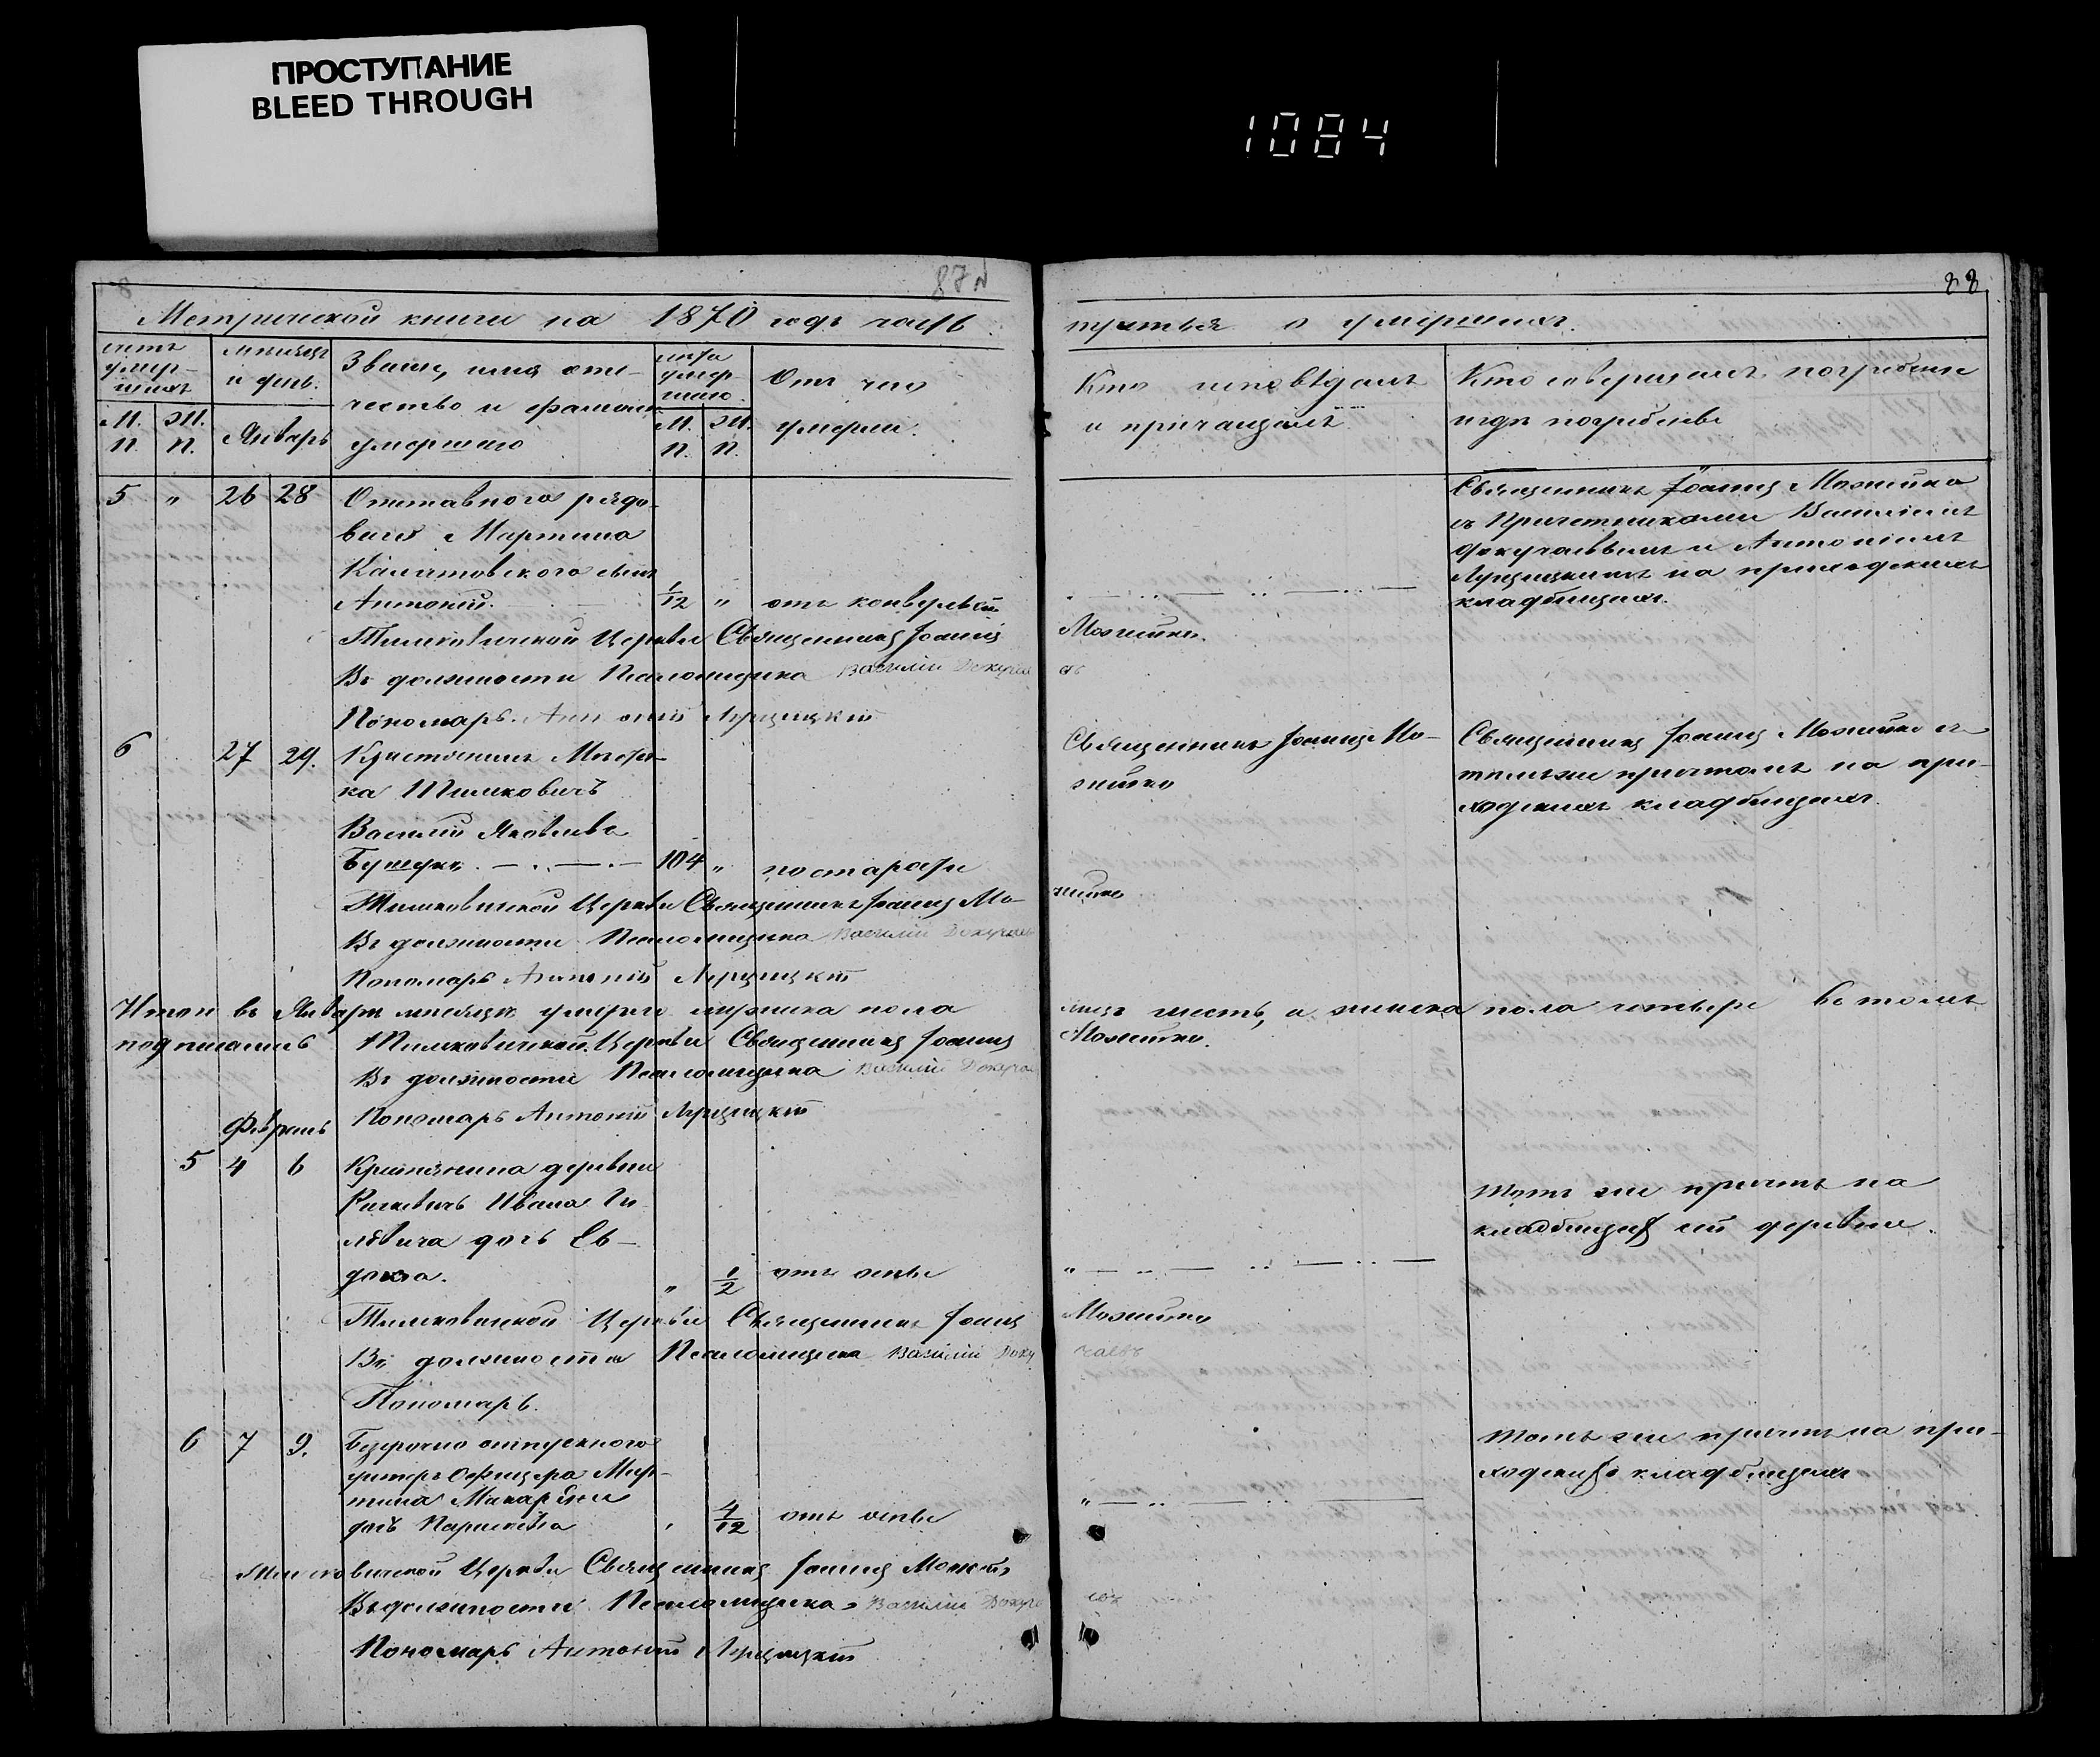 ПРОСТУПАНИЕ
BLEED THROUGH
1084
87
88
Метрической книги на 1870 годъ часть
третья о умершихъ.
счетъ умер-шихъ
М. П.
Ж. П.
мѣсяцъ и день.
Январь
Званіе, имя оте-
чество и фамилія
умершаго
лѣта умер-шаго
М. П.
Ж. П.
Отъ чего
умерли.
Кто исповѣдалъ
и причащалъ
Кто совершалъ погребеніе
и гдѣ погребены
5 " 26 28 Отставного рядо-
ваго Мартина
сынъ
Антоній. 1/12 " отъ
Священникъ Іоаннъ Можейко
съ Причетниками Василіемъ
Докучаевымъ и Антоніемъ
на приходскихъ
кладбищахъ.
Тимковичской Церкви Священникъ Іоаннъ Можейко.
Въ должности Псаломщика Василій Докучаевъ
Пономарь Антоній
6 27 29. Крестьянинъ Мѣстеч-
ка Тимковичъ
Василій Яковлевъ
104 " по старости
Священникъ Іоаннъ Мо-
жейко
Священникъ Іоаннъ Можейко съ
тѣмъ же причтомъ на при-
ходскихъ кладбищахъ.
Тимковичской Церкви Священникъ Іоаннъ Можейко
Въ должности Псаломщика Василій Докучаевъ
Пономарь Антоній
Итого въ Январѣ мѣсяцѣ умерло мужеска пола шесть, а женска пола четыре въ томъ
подписались Тимковичской Церкви Священникъ Іоаннъ Можейко.
Въ должности Псаломщика Василій Докучаевъ
Пономарь Антоній
Февраль
5 4 6 Крестьянина деревни
Ивана
дочь Ев-
докія. " 1/2 отъ оспы
Тотъ же причтъ на
кладбищѣ сей деревни.
Тимковичской Церкви Священникъ Іоаннъ Можейко
Въ должности Псаломщика Василій Докучаевъ
Пономарь.
6 7 9. Безсрочно отпускного
унтеръ Офицера Мар-
тина
дочь Параскева " 4/12 отъ оспы
Тотъ же причтъ на при-
ходскихъ кладбищахъ
Тимковичской Церкви Священникъ Іоаннъ Можейко
Въ должности Псаломщика Василій Докучаевъ
Пономарь Антоній